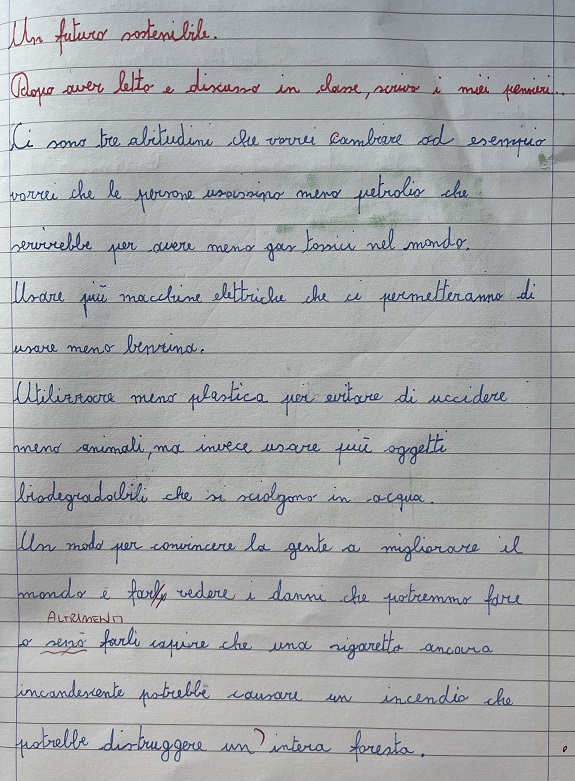 Un futuro sostenibile.
Dopo aver letto e discusso in classe, scrivo i miei pensieri...
Ci sono tre abitudini che vorrei cambiare ad esempio
vorrei che le persone usassino meno petrolio che
servirebbe per avere meno gas tossici nel mondo.
Usare più macchine elettriche che ci permetteranno di
usare meno benzina.
Utilizzare meno plastica per evitare di uccidere
meno animali, ma invece usare più oggetti
biodegradabili che si sciolgono in acqua.
Un modo per convincere la gente a migliorare il
mondo è far vedere i danni che potremmo fare
ALTRIMENTI
o senò farli capire che una sigaretta ancora
incandescente potrebbe causare un incendio che
potrebbe distruggere un'intera foresta.